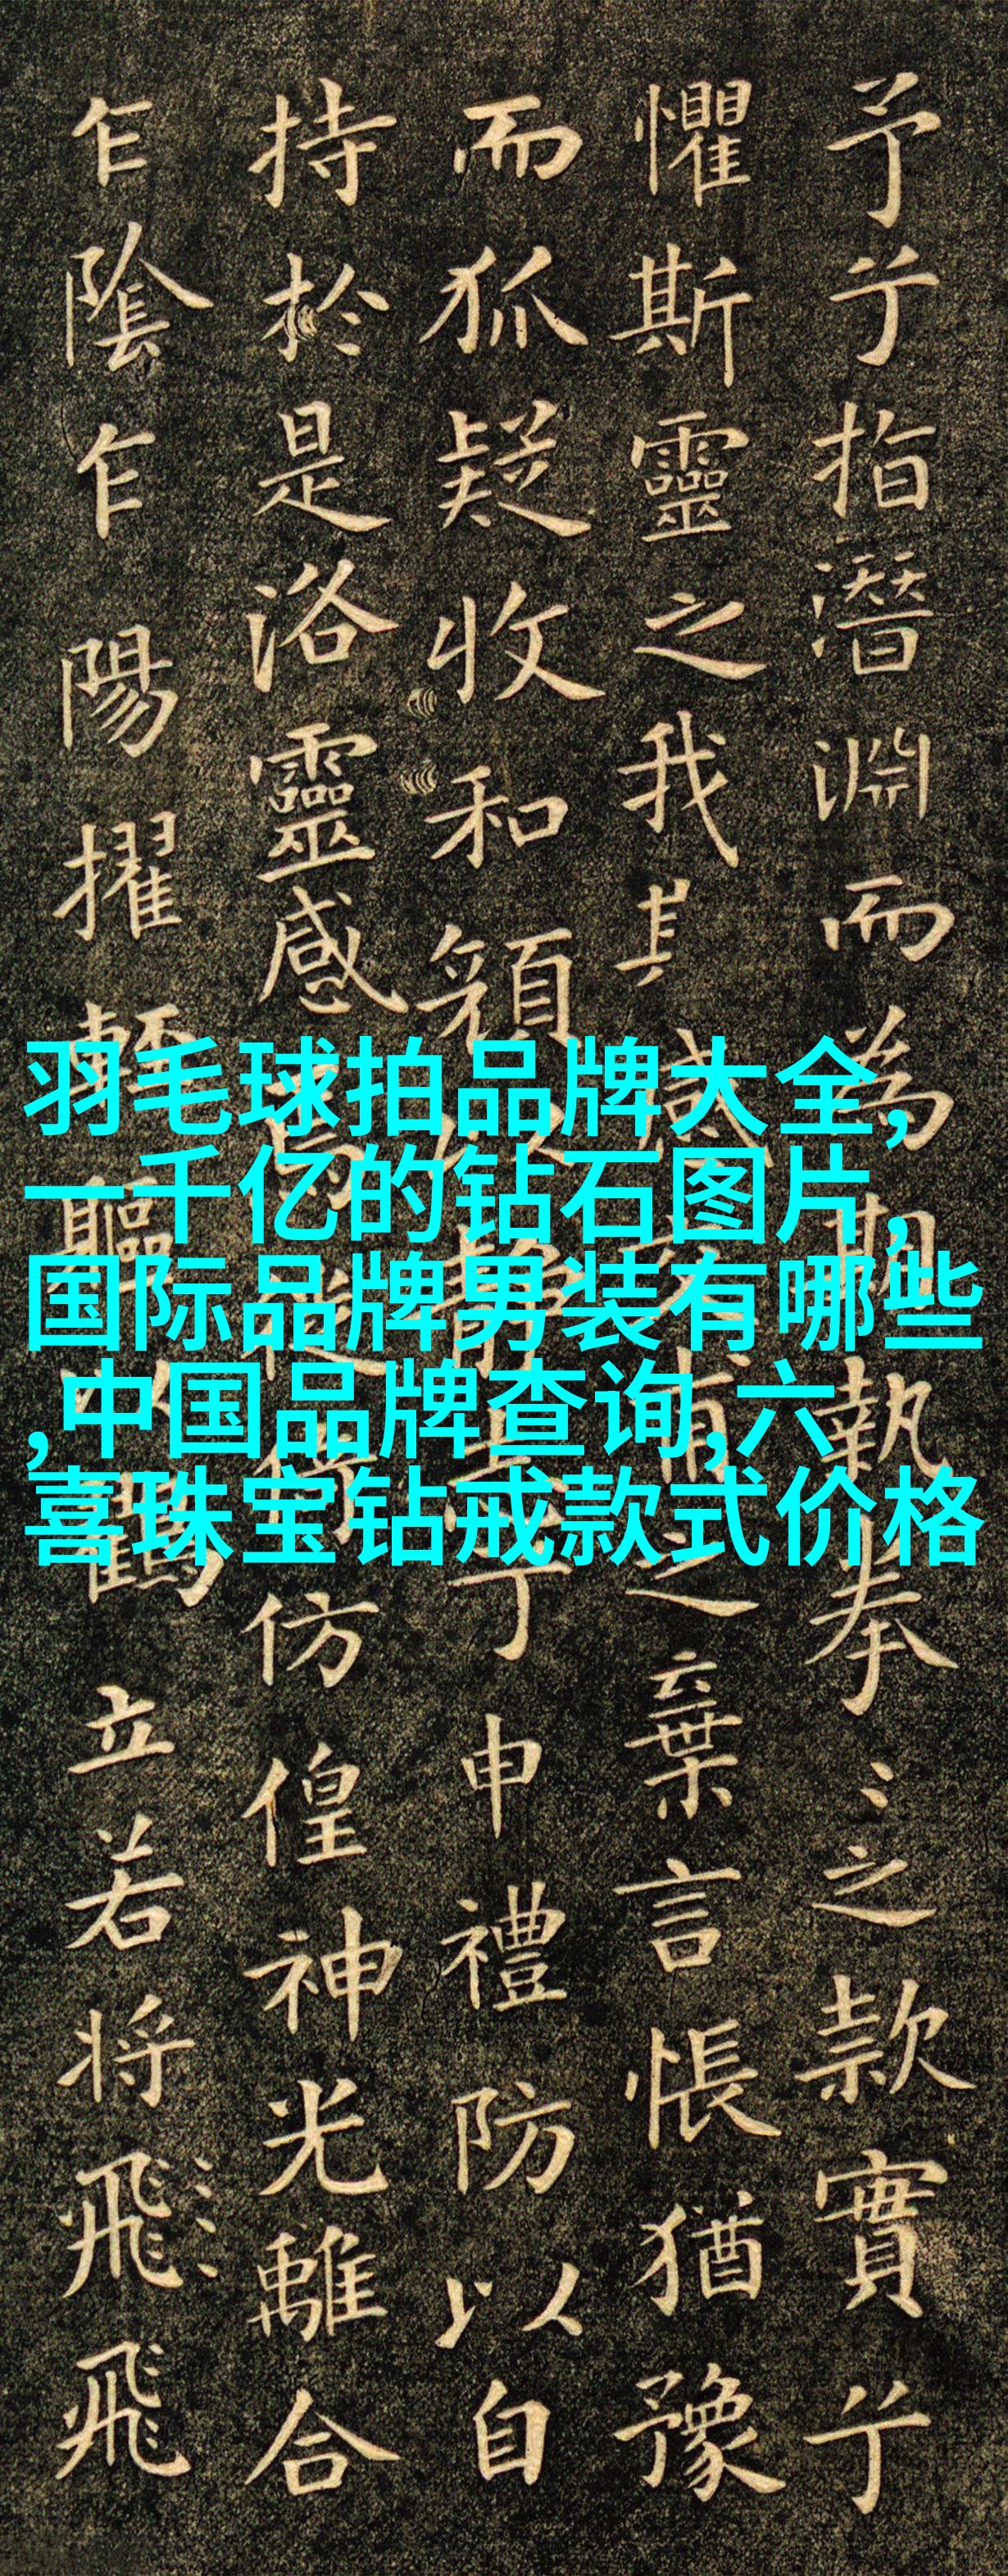 予兮指潛淵而為期執拳〻之款實兮
懼斯靈之我其感甫之棄言悵猶豫
而狐疑收和顏靜兮申禮防以自
持於是洛靈感焉徙倚仿偟神光離合
乍陰乍陽擢輕軀以鶴立若將飛飛
羽毛球拍品牌大全,
一千亿的钻石图片,
国际品牌男装有哪些
,中国品牌查询,六
喜珠宝钻戒款式价格